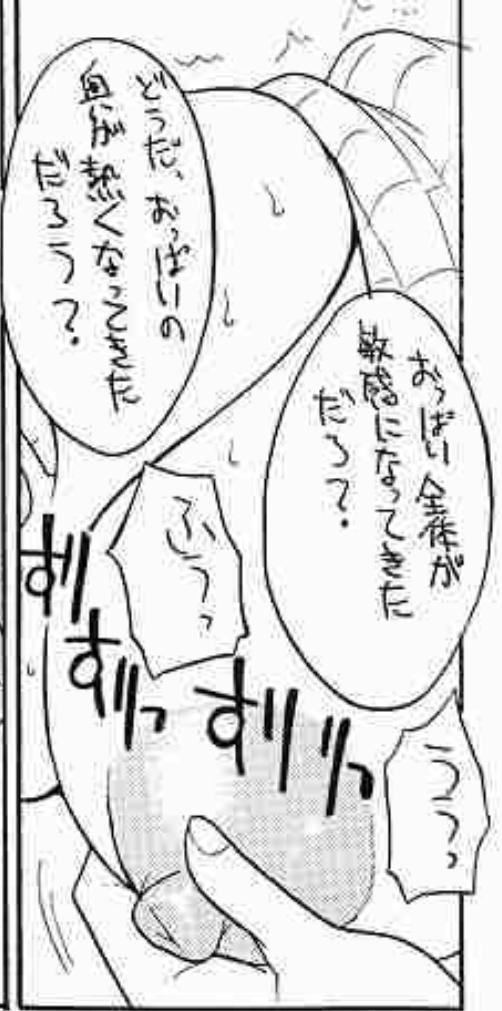 おっぱい全体が
敏感になってきた
だろ？
ううっ
どうだ、おっぱいの
奥が熱くなってきた
だろう？
ふうっ
ずりっ
ずりっ
ずり